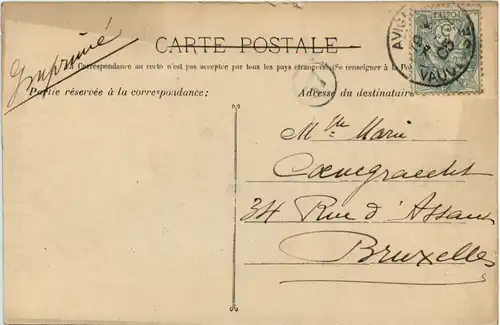 Imprimé
CARTE POSTALE
Correspondance au recto n'est pas acceptée par tous les pays étrangers (Se renseigner à la Po
Partie réservée à la correspondance:
Adresse du destinataire
AVIG
05
VAUCLUSE
Mlle Marie
Coenegracht
34 Rue d'Assaut
Bruxelles